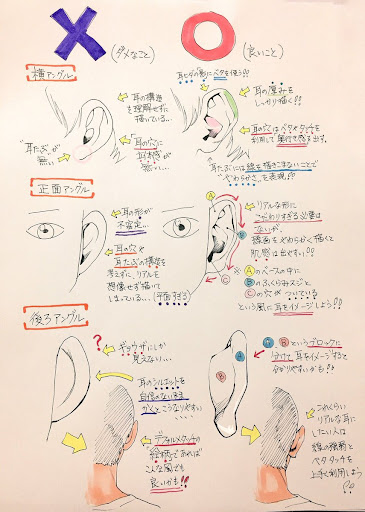 (ダメなこと)
(良いこと)
横アングル
耳の構造
を理解せずに
描いている...
"耳たぶ"が
無い
"耳の穴"に
立体感が
無い...
耳ヒダの"影"にベタを使う!!
耳の厚みを
しっかり描く!!
耳の穴はベタ×タッチを
利用して奥行き感を出す。
"耳たぶ"には線を描きこまないことで
"やわらかさ"を表現!!
正面アングル
耳の形が
不安定...
耳の穴や
耳たぶの構造を
考えずに、リアルを
想像せず描いて
しまっている...(平面すぎる)
A
B
C
リアルな形に
こだわりすぎる必要は
ないが、
線画をやわらかく描くと
肌感は出やすい!!
※Aのベースの中に
Bのふくらみスジと
Cの穴がついている
という風に耳をイメージしよう!!
後ろアングル
?
ギョウザにしか
見えない...
耳のシルエットを
自信のないまま
かくとこうなりやすい
デフォルメタッチの
絵柄であれば
こんな風でも
良いかも!!
A
B
A Bというブロックに
分けて耳をイメージすると
分かりやすいかも!!
これくらい
リアルな耳に
したい人は
線の強弱と
ベタタッチを
上手く利用しよう